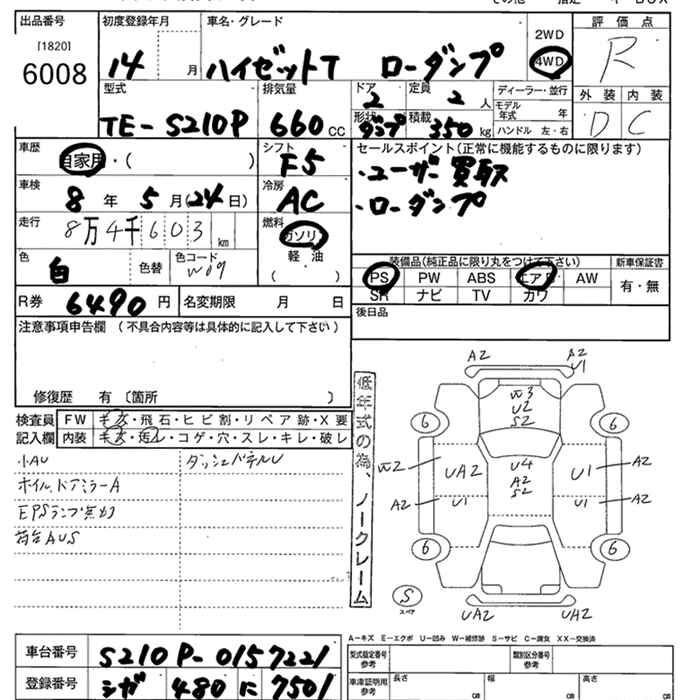 出品番号
[1820]
6008
初度登録年月
14 月
車名・グレード
ハイゼットT ローダンプ
2WD
4WD
評価点
R
型式
TE-S210P
排気量
660 CC
ドア
2
定員
2 人
形状
ダンプ
積載
350 kg
ディーラー・並行
モデル年式 年
ハンドル 左・右
外装 内装
D C
車歴
自家用・( )
シフト
F5
セールスポイント(正常に機能するものに限ります)
・ユーザー買取
・ローダンプ
車検
8 年 5 月(24 日)
冷房
AC
走行
8万4千603 km
燃料
ガソリン
軽・油
( )
色
白
色替
色コード
W09
装備品(純正品に限り丸をつけて下さい)
新車保証書
PS PW ABS エアB AW
SR ナビ TV カワ
有・無
R券 6490 円
名変期限 月 日
後日品
注意事項申告欄 (不具合内容等は具体的に記入して下さい)
修復歴 有 〔箇所 〕
検査員記入欄
FW キズ・飛石・ヒビ割・リペア跡・X要
内装 キズ・汚レ・コゲ・穴・スレ・キレ・破レ
小AU
ダッシュパネルU
ホイル、ドアミラーA
EPSランプ点灯
荷台AUS
低年式の為、ノークレーム
A2
A2
U1
W3
U2
S2
6
6
W2
UA2
U4
A2
S2
U1
A2
A2
U1
U1
A2
6
6
S
スペア
UA2
UA2
A-キズ E-エクボ U-凹み W-補修跡 S-サビ C-腐食 XX-交換済
車台番号
S210P-0157221
登録番号
シガ 480 に 7501
型式指定番号
参考
類別区分番号
参考
車庫証明用
参考
長さ
cm
幅
cm
高さ
cm